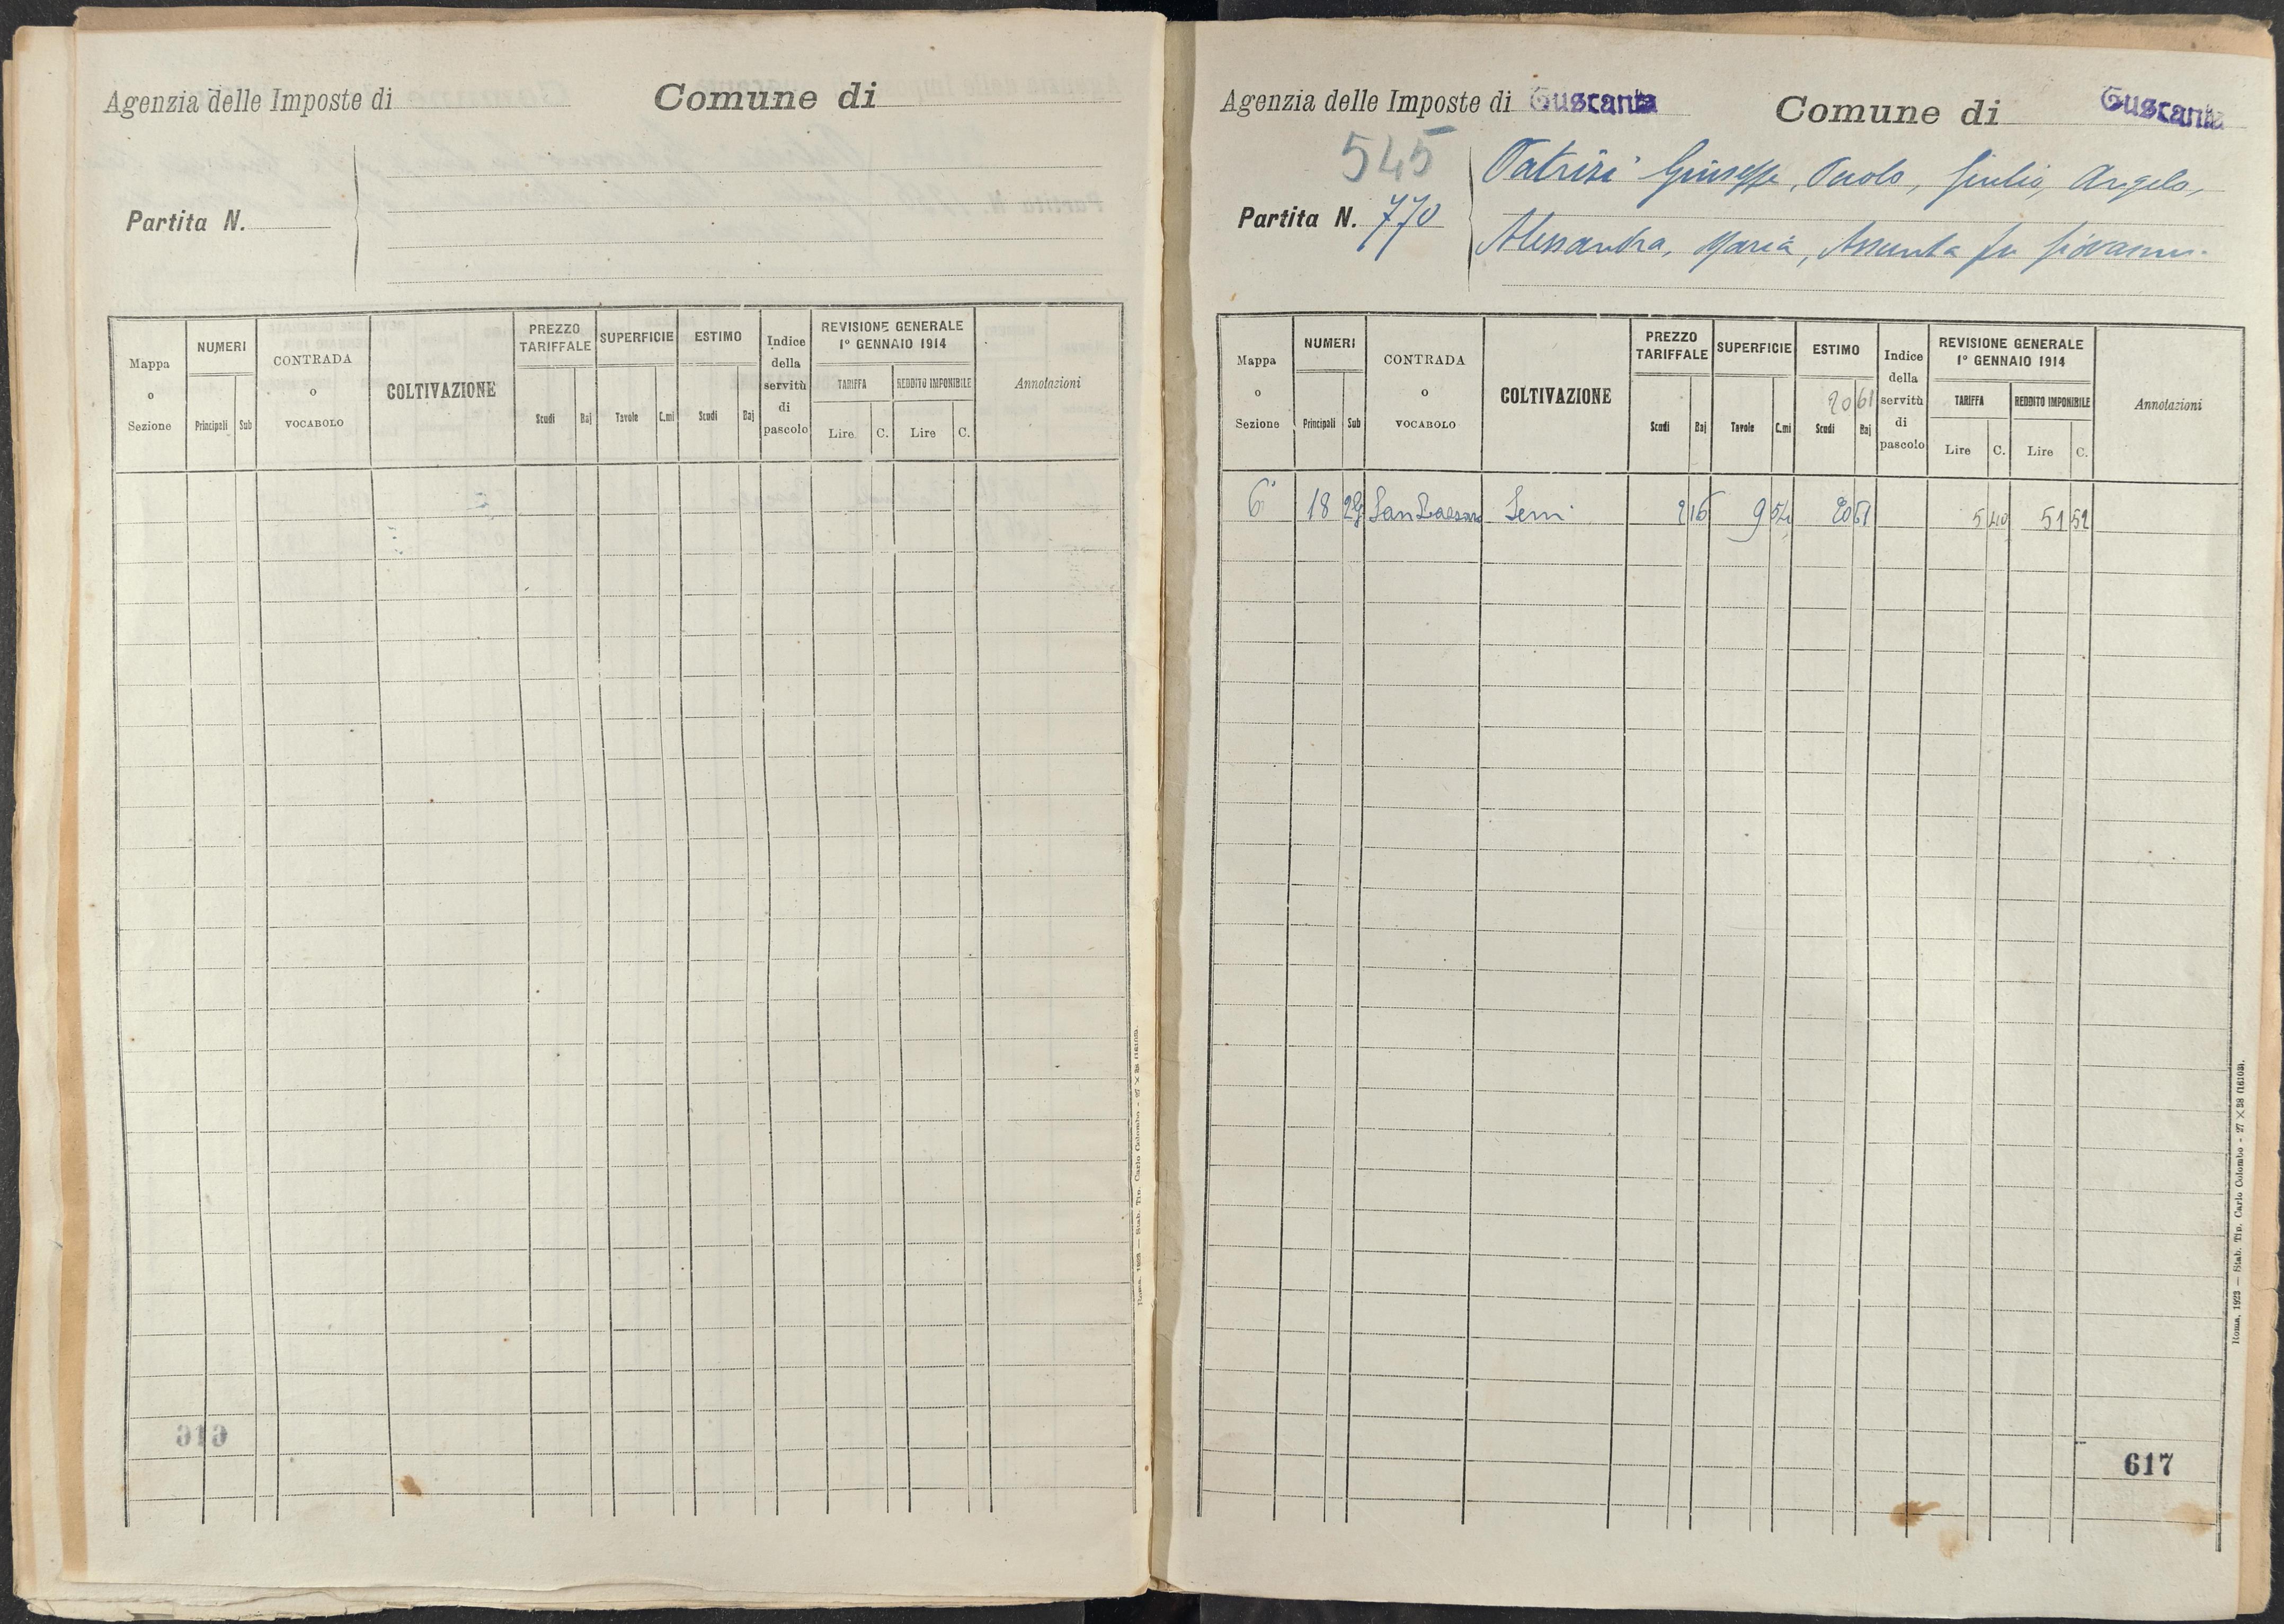 Agenzia delle Imposte di
Comune di
Partita N.
Mappa o Sezione
NUMERI
Principali Sub
CONTRADA o VOCABOLO
COLTIVAZIONE
PREZZO TARIFFALE
Scudi Baj
SUPERFICIE
Tavole C.mi
ESTIMO
Scudi Baj
Indice della servitù di pascolo
REVISIONE GENERALE
1° GENNAIO 1914
TARIFFA REDDITO IMPONIBILE
Lire C. Lire C.
Annotazioni
Roma, 1923 — Stab. Tip. Carlo Colombo - 27 × 38 (16103).
Agenzia delle Imposte di Tuscania
Comune di Tuscania
545
Partita N. 770
Patrizi Giuseppe, Paolo, Giulio, Angelo,
Alessandra, Maria, Assunta fu Giovanni.
Mappa o Sezione
NUMERI
Principali Sub
CONTRADA o VOCABOLO
COLTIVAZIONE
PREZZO TARIFFALE
Scudi Baj
SUPERFICIE
Tavole C.mi
ESTIMO
20 61
Scudi Baj
Indice della servitù di pascolo
REVISIONE GENERALE
1° GENNAIO 1914
TARIFFA REDDITO IMPONIBILE
Lire C. Lire C.
Annotazioni
6 18 San Semi 2 16 9 54 20 61 5 40 51 52
617
Roma, 1923 — Stab. Tip. Carlo Colombo - 27 × 38 (16103).